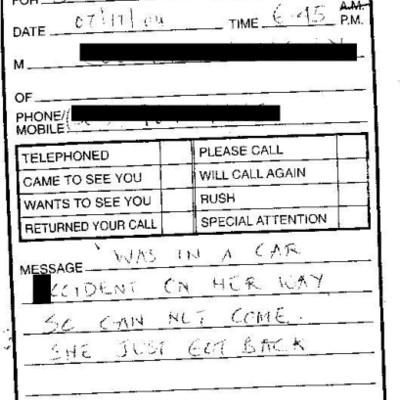 FOR
DATE 07/17/04 TIME 6-45 A.M. P.M.
M
OF
PHONE/
MOBILE
TELEPHONED PLEASE CALL
CAME TO SEE YOU WILL CALL AGAIN
WANTS TO SEE YOU RUSH
RETURNED YOUR CALL SPECIAL ATTENTION
MESSAGE WAS IN A CAR
CCIDENT ON HER WAY
SO CAN NOT COME.
SHE JUST GOT BACK